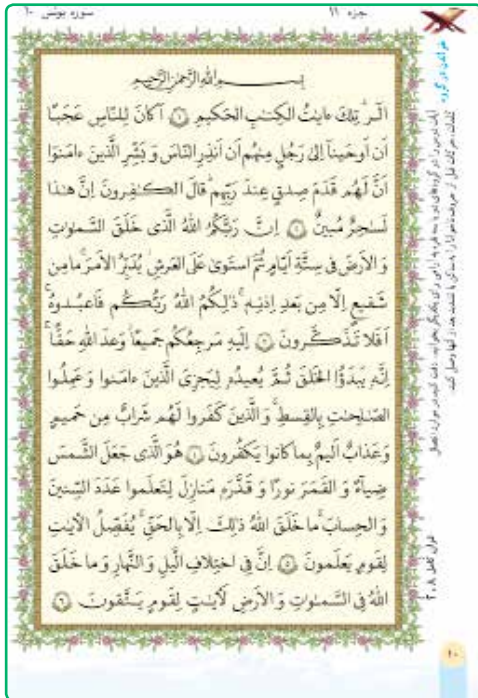 سوره یونس ۱۰
جزء ۱۱
بِسْمِ اللهِ الرَّحْمٰنِ الرَّحیمِ
الٓرٰ تِلكَ ءایٰتُ الکِتٰبِ الحَکیمِ ۱ اَکانَ لِلنّاسِ عَجَبًا
اَن اَوحَینآ اِلىٰ رَجُلٍ مِنهُم اَن اَنذِرِ النّاسَ وَ بَشِّرِ الَّذینَ ءامَنوا
اَنَّ لَهُم قَدَمَ صِدقٍ عِندَ رَبِّهِم قالَ الکٰفِرونَ اِنَّ هٰذا
لَسٰحِرٌ مُبینٌ ۲ اِنَّ رَبَّکُمُ اللهُ الَّذی خَلَقَ السَّمٰوٰتِ
وَ الاَرضَ فی سِتَّةِ اَیّامٍ ثُمَّ استَوىٰ عَلَى العَرشِ یُدَبِّرُ الاَمرَ ما مِن
شَفیعٍ اِلّا مِن بَعدِ اِذنِهٖ ذٰلِکُمُ اللهُ رَبُّکُم فَاعبُدوهُ
اَفَلا تَذَکَّرونَ ۳ اِلَیهِ مَرجِعُکُم جَمیعًا وَعدَ اللهِ حَقًّا
اِنَّهٗ یَبدَؤُا الخَلقَ ثُمَّ یُعیدُهٗ لِیَجزِیَ الَّذینَ ءامَنوا وَ عَمِلُوا
الصّٰلِحٰتِ بِالقِسطِ وَ الَّذینَ کَفَروا لَهُم شَرابٌ مِن حَمیمٍ
وَ عَذابٌ اَلیمٌ بِما کانوا یَکفُرونَ ۴ هُوَ الَّذی جَعَلَ الشَّمسَ
ضِیآءً وَ القَمَرَ نورًا وَ قَدَّرَهٗ مَنازِلَ لِتَعلَموا عَدَدَ السِّنینَ
وَ الحِسابَ ما خَلَقَ اللهُ ذٰلِكَ اِلّا بِالحَقِّ یُفَصِّلُ الاٰیٰتِ
لِقَومٍ یَعلَمونَ ۵ اِنَّ فِی اختِلافِ الَّیلِ وَ النَّهارِ وَ ما خَلَقَ
اللهُ فِی السَّمٰوٰتِ وَ الاَرضِ لَاٰیٰتٍ لِقَومٍ یَتَّقونَ ۶
خواندن در گروه
۲۰